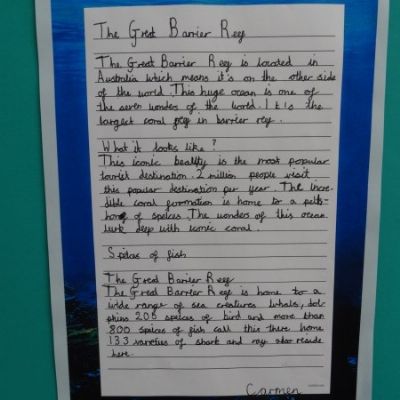 The Great Barrier Reef
The Great Barrier Reef is located in
Australia which means it's on the other side
of the world. This huge ocean is one of
the seven wonders of the world. It is the
largest coral in barrier
What it looks like?
This iconic beality is the most popular
tourist destination. 2 million people visit
this popular destination per year. The Incre-
dible coral formation is home to a
of speices. The wonders of this ocean
lurk deep with iconic coral.
Speices of fish
The Great Barrier Reef
The Great Barrier Reef is home to a
wide range of sea creatures whales, dol-
phins 205 speices of bird and more than
800 speices of fish call this there home
133 varieties of shark and ray also reside
here.
Carmen